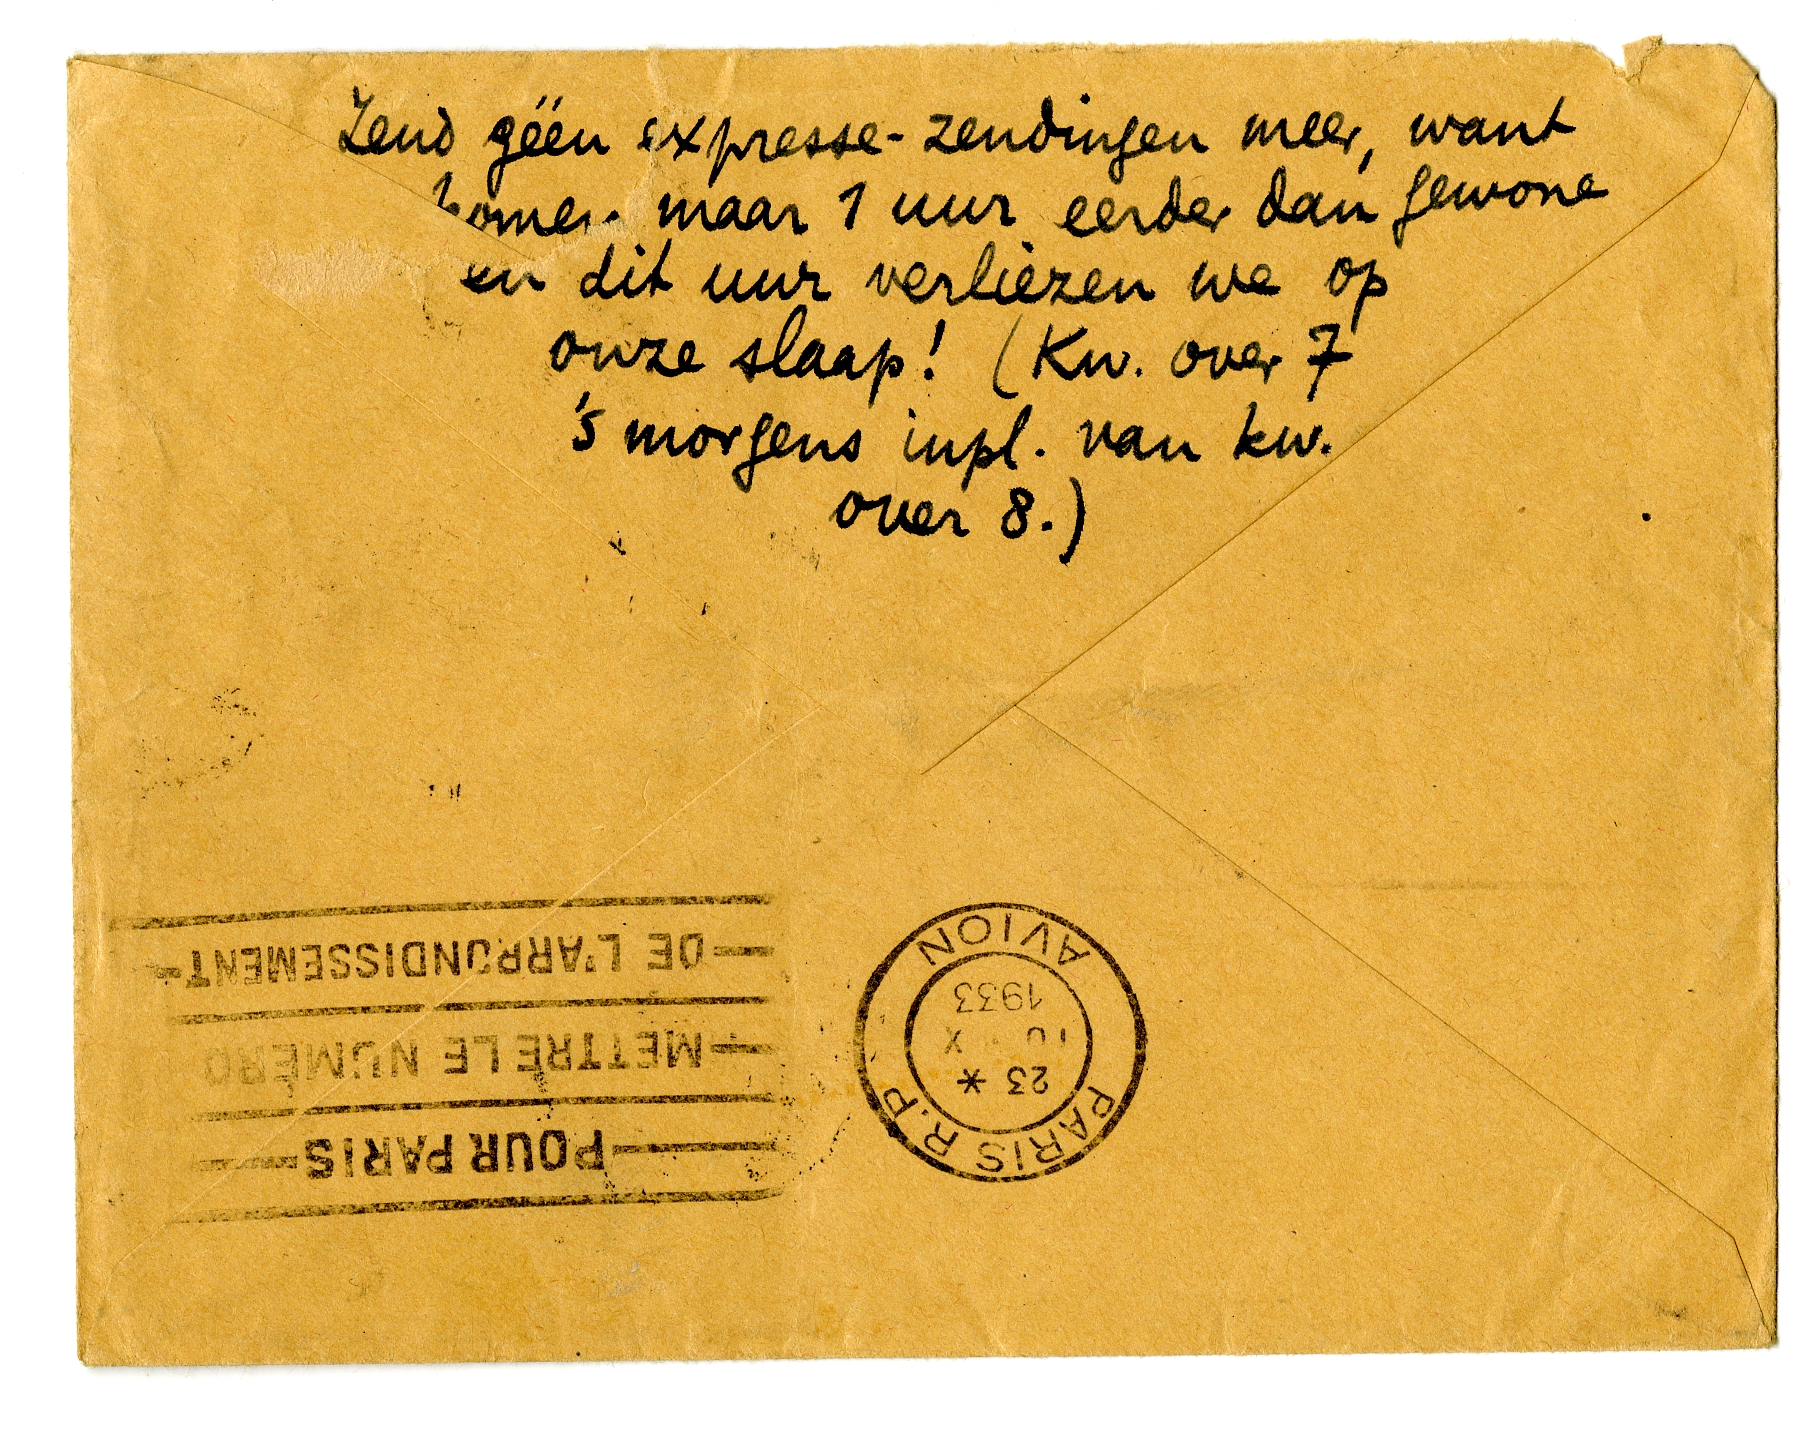 Zend géén expresse-zendingen meer, want
komen maar 1 uur eerder dan gewone
en dit uur verliezen we op
onze slaap! (Kw. over 7
's morgens inpl. van kw.
over 8.)
DE L'ARRONDISSEMENT
METTRE LE NUMÉRO
POUR PARIS
AVION
1933
X
23 *
PARIS R.P.